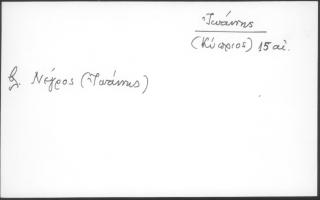 Ἰωάννης
(Κύπριος) 15 αἰ.
βλ. Νέγρος (Ἰωάννης)